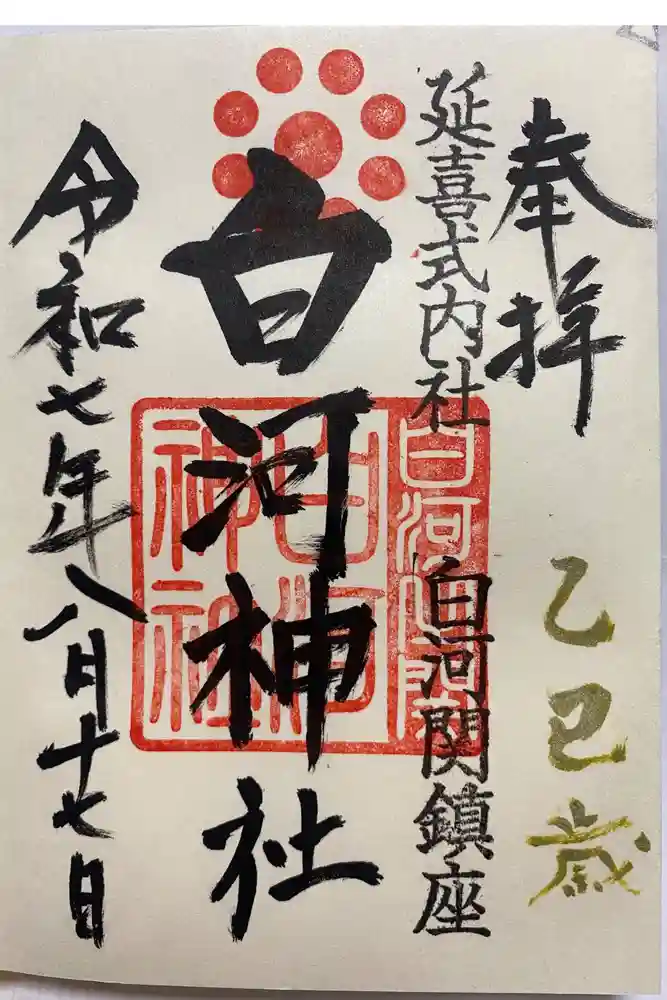 奉拝
乙巳歳
延喜式内社
白河関鎮座
白河神社
白河関
白河神社
令和七年八月十七日